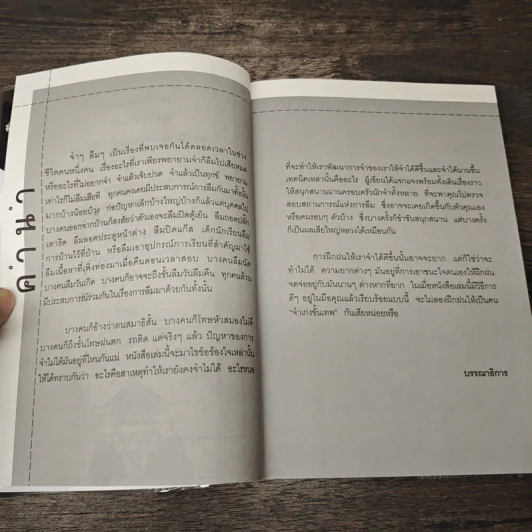 คำนำ
จำๆ ลืมๆ เป็นเรื่องที่พบเจอกันได้ตลอดเวลาในช่วง
ชีวิตคนหนึ่งคน เรื่องอะไรที่เราเพียรพยายามจำก็ลืมไปเสียหมด
หรืออะไรที่ไม่อยากจำ จำแล้วเจ็บปวด จำแล้วเป็นทุกข์ พยายาม
เท่าไรก็ไม่ลืมเสียที ทุกคนคงเคยมีประสบการณ์การลืมกันมาทั้งนั้น
มากบ้างน้อยบ้าง ก่อปัญหาเล็กบ้างใหญ่บ้างก็แล้วแต่บุคคลไป
บางคนออกจากบ้านก็สงสัยว่าตัวเองจะลืมปิดตู้เย็น ลืมถอดปลั๊ก
เตารีด ลืมลอคประตูหน้าต่าง ลืมปิดแก๊ส เด็กนักเรียนลืม
การบ้านไว้ที่บ้าน หรือลืมเอาอุปกรณ์การเรียนที่สำคัญมาใช้
ลืมเนื้อหาที่เพิ่งท่องมาเมื่อคืนตอนเวลาสอบ บางคนลืมนัด
บางคนลืมวันเกิด บางคนก็อาจจะถึงขั้นลืมวันลืมคืน ทุกคนล้วน
มีประสบการณ์ร่วมกันในเรื่องการลืมมาด้วยกันทั้งนั้น
บางคนก็อ้างว่าตนสมาธิสั้น บางคนก็โทษหัวสมองไม่ดี
บางคนก็ถึงขั้นโทษฝนตก รถติด แต่จริงๆ แล้ว ปัญหาของการ
จำไม่ได้มันอยู่ที่ไหนกันแน่ หนังสือเล่มนี้จะมาไขข้อข้องใจเหล่านั้น
ให้ได้ทราบกันว่า อะไรคือสาเหตุทำให้เรายังคงจำไม่ได้ อะไรหนอ
ที่จะทำให้เราพัฒนาการจำของเราให้จำได้ดีขึ้นและจำได้นานขึ้น
เทคนิคเหล่านั้นคืออะไร ผู้เขียนได้แจกแจงพร้อมทั้งเดินเรื่องราว
ให้สนุกสนานผ่านครอบครัวนักจำทั้งหลาย ที่จะพาคุณไปตรวจ
สอบสถานการณ์แห่งการลืม ซึ่งอาจจะเคยเกิดขึ้นกับตัวคุณเอง
หรือคนรอบๆ ตัวบ้าง ซึ่งบางครั้งก็ขำขันสนุกสนาน แต่บางครั้ง
ก็เป็นผลเสียใหญ่หลวงได้เหมือนกัน
การฝึกฝนให้เราจำได้ดีขึ้นนั้นอาจจะยาก แต่ก็ใช่ว่าจะ
ทำไม่ได้ ความยากต่างๆ มันอยู่ที่การเอาชนะใจตนเองให้ฝึกฝน
จดจ่ออยู่กับมันนานๆ ต่างหากที่ยาก ในเมื่อหนังสือเล่มนี้มีวิธีการ
ดีๆ อยู่ในมือคุณแล้วเรียบร้อยแบบนี้ จะไม่ลองฝึกฝนให้เป็นคน
“จำเก่งขั้นเทพ” กันเสียหน่อยหรือ
บรรณาธิการ